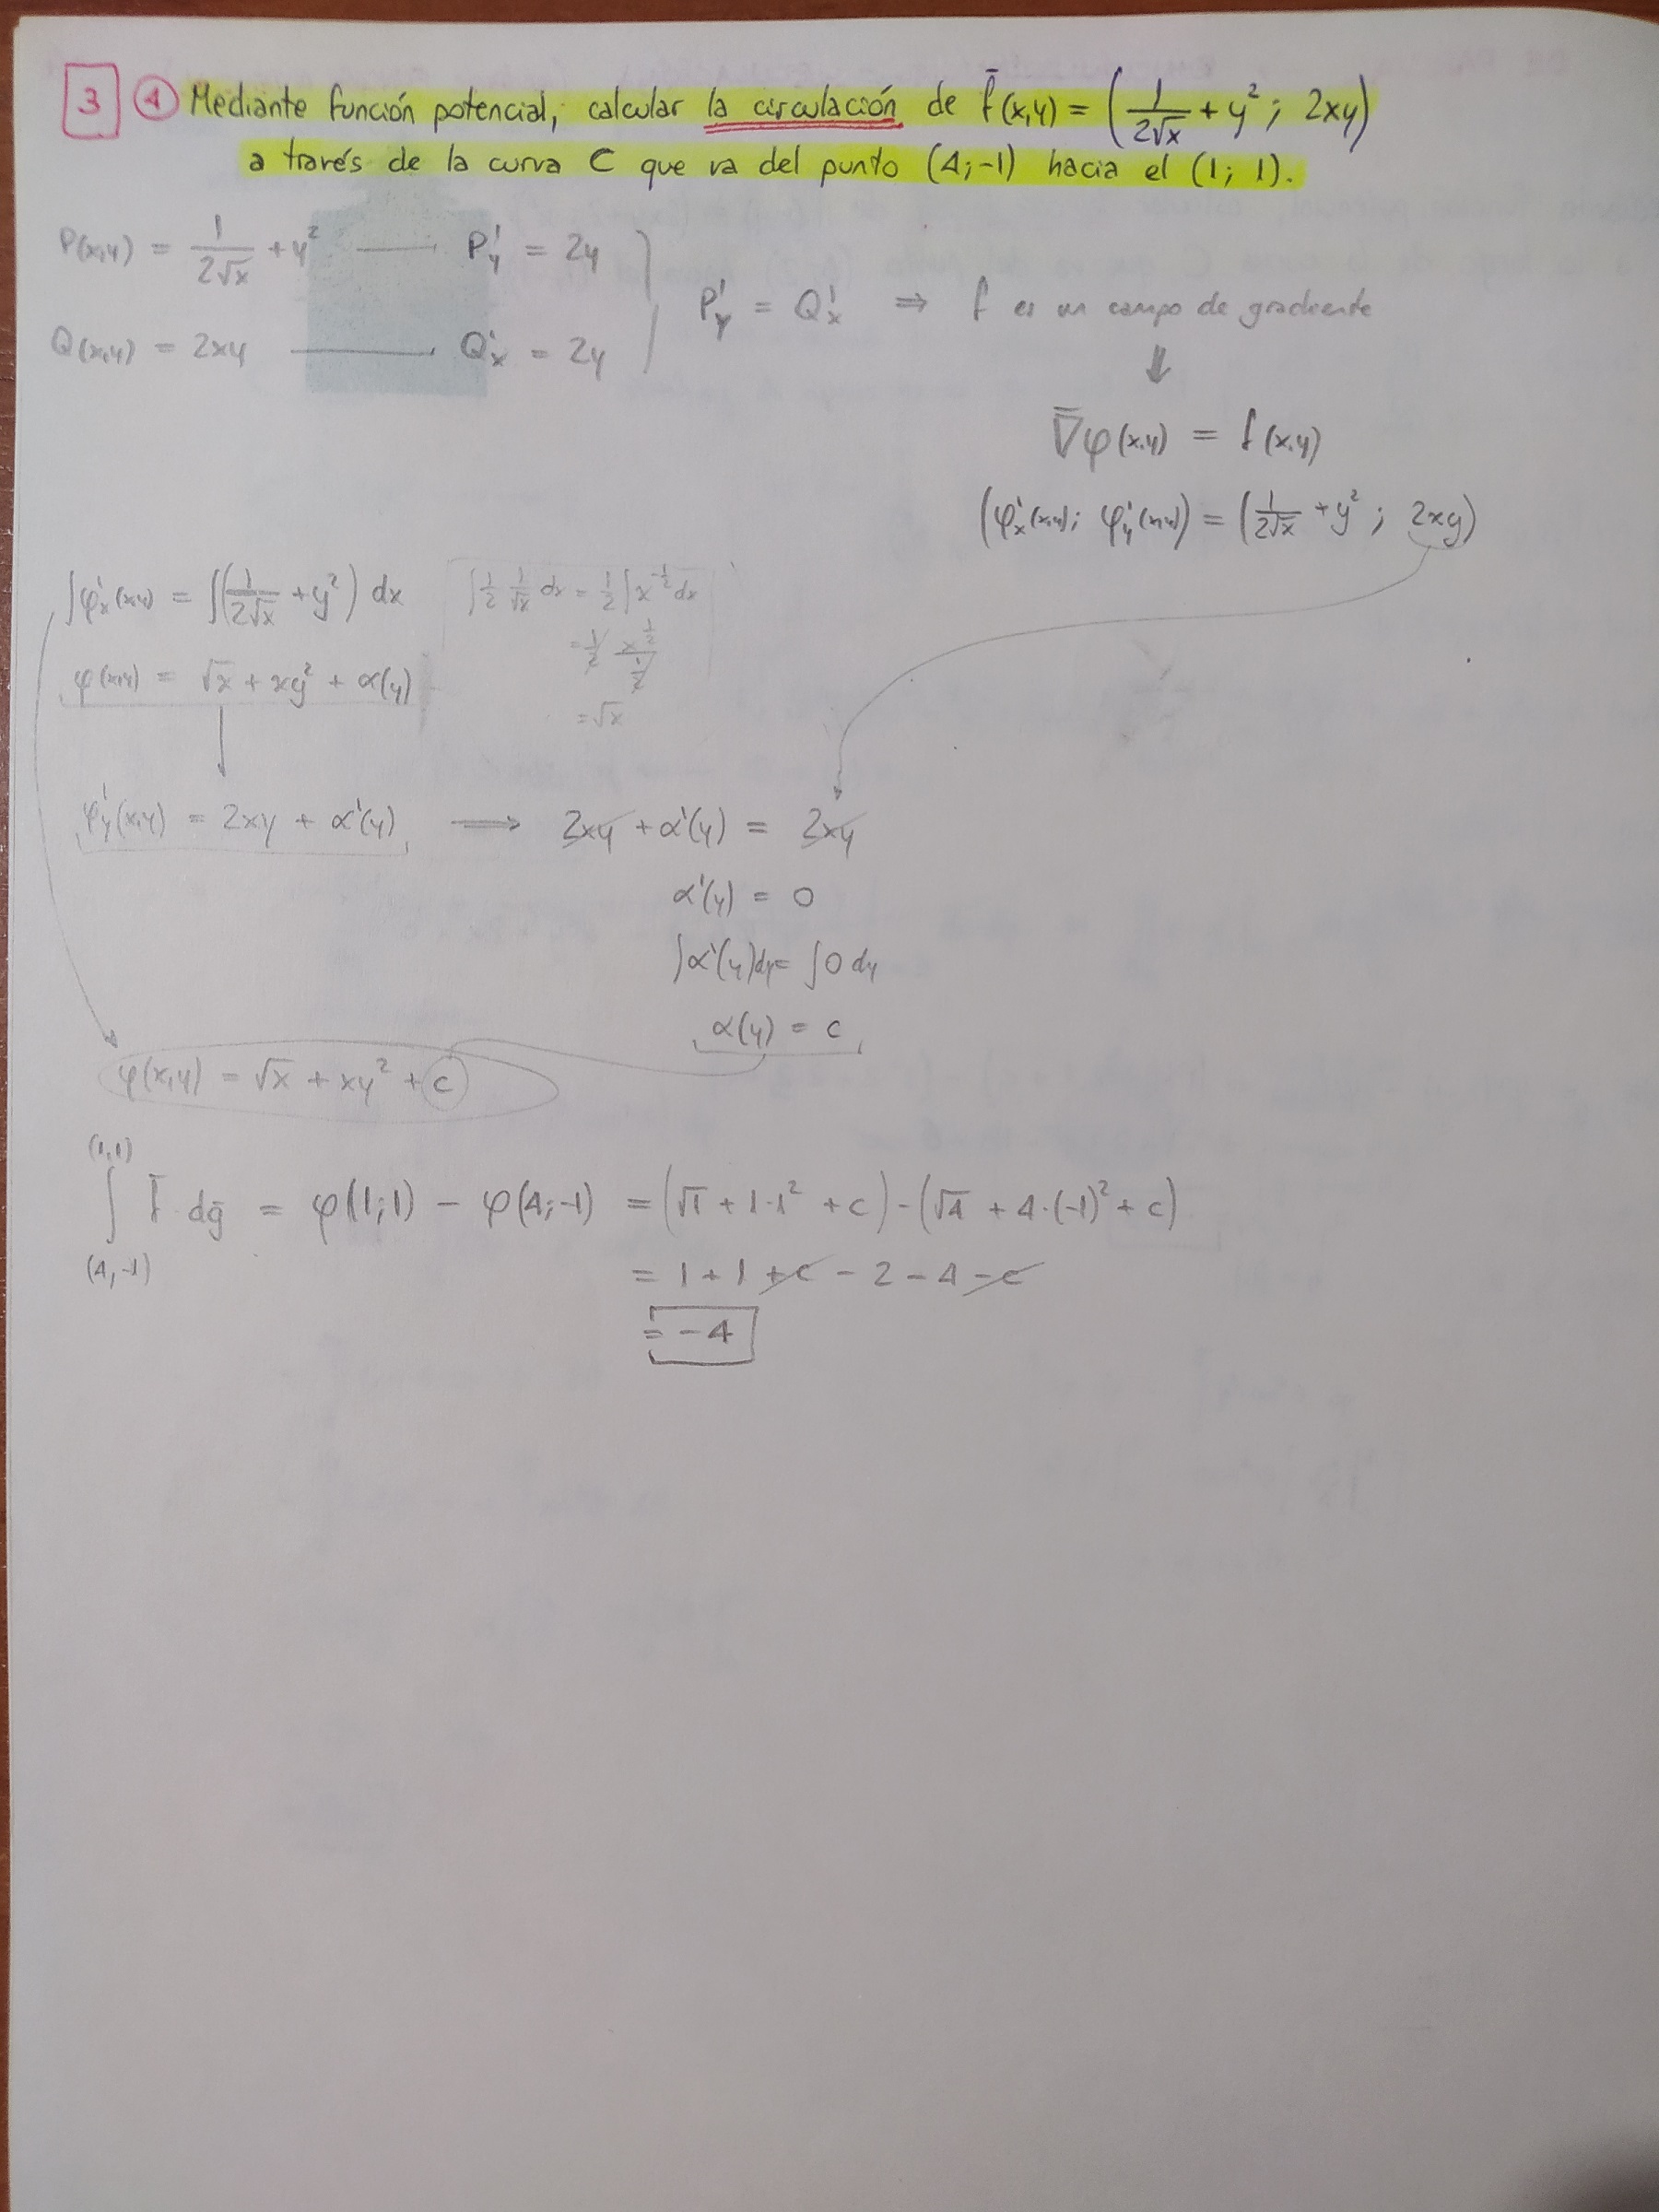 3 ④ Mediante función potencial, calcular la circulación de f̄(x,y) = (1/(2√x) + y²; 2xy)
a través de la curva C que va del punto (4;-1) hacia el (1; 1).
P(x,y) = 1/(2√x) + y² —— P'y = 2y
Q(x,y) = 2xy —— Q'x = 2y
P'y = Q'x ⇒ f es un campo de gradiente
⇓
∇̄φ(x,y) = f(x,y)
(φ'x(x,y); φ'y(x,y)) = (1/(2√x) + y²; 2xy)
∫φ'x(x,y) = ∫(1/(2√x) + y²) dx
∫ 1/2 1/√x dx = 1/2 ∫ x^(-1/2) dx
= 1/2 x^(1/2)/(1/2)
= √x
φ(x,y) = √x + xy² + α(y)
φ'y(x,y) = 2xy + α'(y) ⟹ 2xy + α'(y) = 2xy
α'(y) = 0
∫α'(y)dy = ∫0 dy
α(y) = c
φ(x,y) = √x + xy² + c
∫_(4,-1)^(1,1) f̄ dḡ = φ(1;1) - φ(4;-1) = (√1 + 1·1² + c) - (√4 + 4·(-1)² + c)
= 1 + 1 + c - 2 - 4 - c
= -4